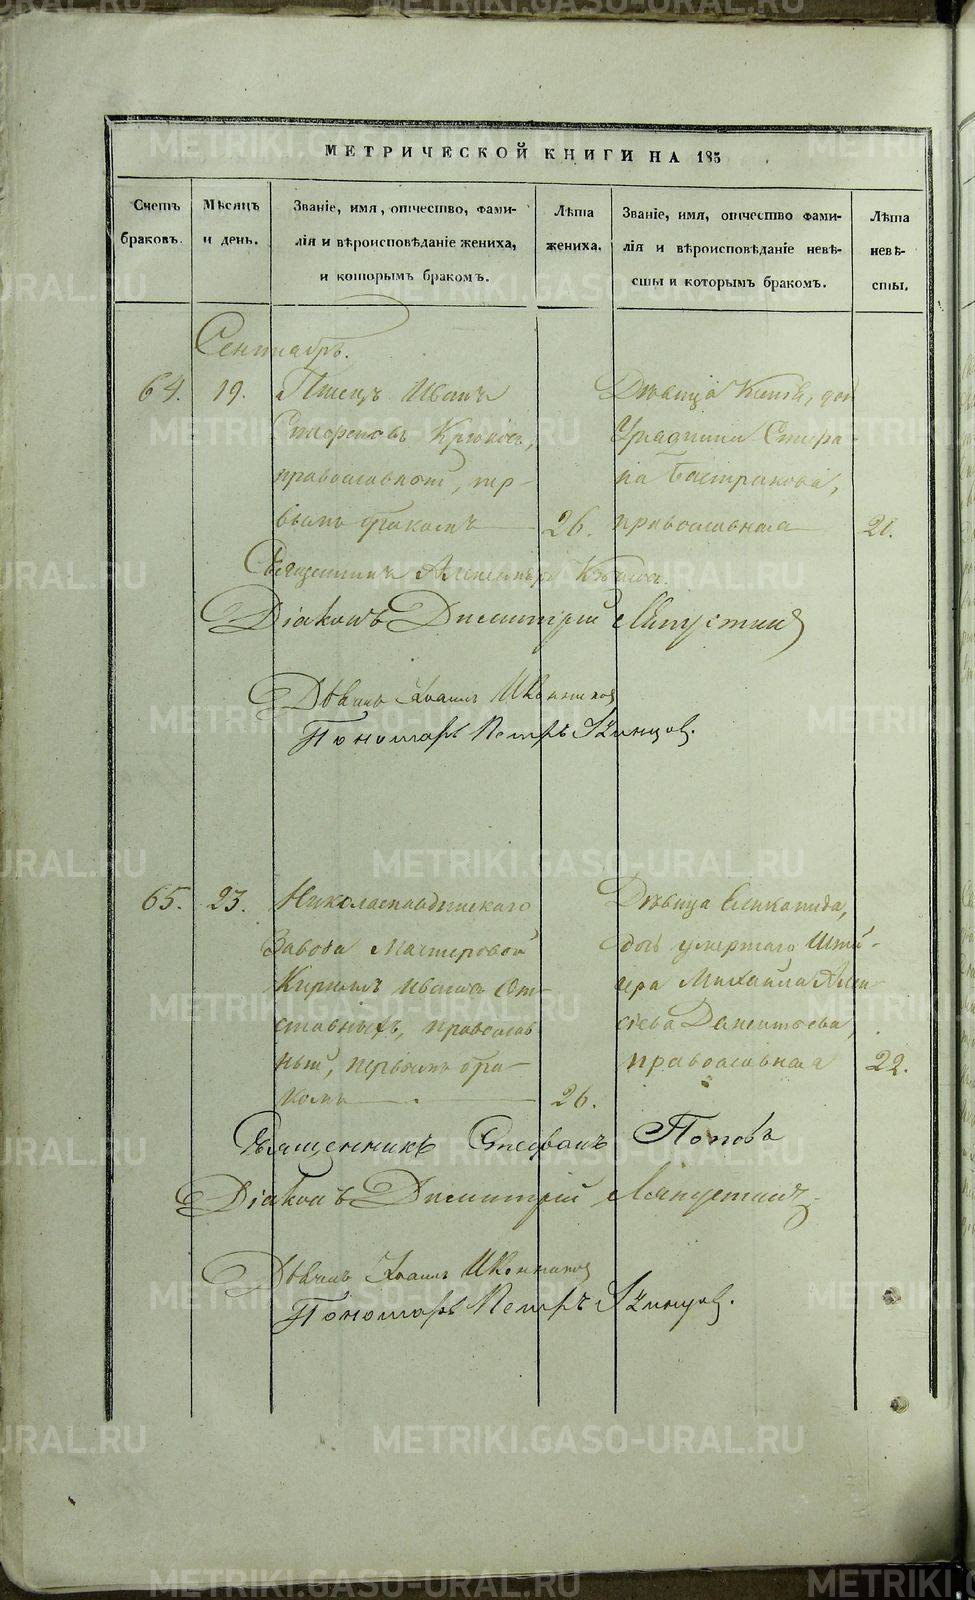 МЕТРИЧЕСКОЙ КНИГИ НА 185
Счетъ браковъ.
Мѣсяцъ и день.
Званіе, имя, отчество, фами-
лія и вѣроисповѣданіе жениха,
и которымъ бракомъ.
Лѣта
жениха.
Званіе, имя, отчество фами-
лія и вѣроисповѣданіе невѣ-
сты и которымъ бракомъ.
Лѣта
невѣ-
сты.
Сентябрь.
64. 19. Писецъ Иванъ
православной, пер-
вымъ бракомъ 26.
Дѣвица
православная 21.
Священникъ Александръ
Діаконъ Димитрій Ляпустинъ
Дьячекъ Іоаннъ Иконниковъ
Пономарь Петръ
65. 23. Николаепавдинскаго
Завода Мастеровой
Кириллъ Ивановъ От-
ставныхъ, православ
ный, первымъ бра-
комъ 26.
Дѣвица
дочь умершаго Штей-
гера Михаила Алек-
сѣева
православная 22.
Священникъ Стефанъ Поповъ
Діаконъ Димитрій Ляпустинъ
Дьячекъ Іоаннъ Иконниковъ
Пономарь Петръ
METRIKI.GASO-URAL.RU